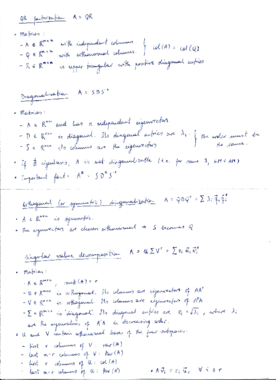 QR factorization A = QR
• Matrices:
- A ∈ ℝᵐˣⁿ with independent columns
- Q ∈ ℝᵐˣⁿ with orthonormal columns } col(A) = col(Q)
- R ∈ ℝⁿˣⁿ is upper triangular with positive diagonal entries
Diagonalization A = SDS⁻¹
• Matrices:
- A ∈ ℝⁿˣⁿ and has n independent eigenvectors
- D ∈ ℝⁿˣⁿ is diagonal. Its diagonal entries are λᵢ.
- S ∈ ℝⁿˣⁿ its columns are the eigenvectors } the order must be the same.
• if eigenbasis, A is not diagonalizable for some λ
• Important fact: Aᵏ = SDᵏS⁻¹
Orthogonal (or symmetric) diagonalization A = QDQᵀ
• A ∈ ℝⁿˣⁿ is symmetric.
• The eigenvectors are chosen orthonormal → S becomes Q
Singular value decomposition A = UΣVᵀ
• Matrices:
- A ∈ ℝᵐˣⁿ, rank(A) = r
- U is orthogonal. Its columns are eigenvectors of AAᵀ
- V is orthogonal. Its columns are eigenvectors of AᵀA
- Σ is diagonal. Its diagonal entries are where λᵢ
are the eigenvalues of AᵀA in decreasing order.
• U and V contain orthonormal bases of the four subspaces:
- first r columns of V: row(A)
- last n-r columns of V: Nul(A)
- first r columns of U: col(A)
- last m-r columns of U: